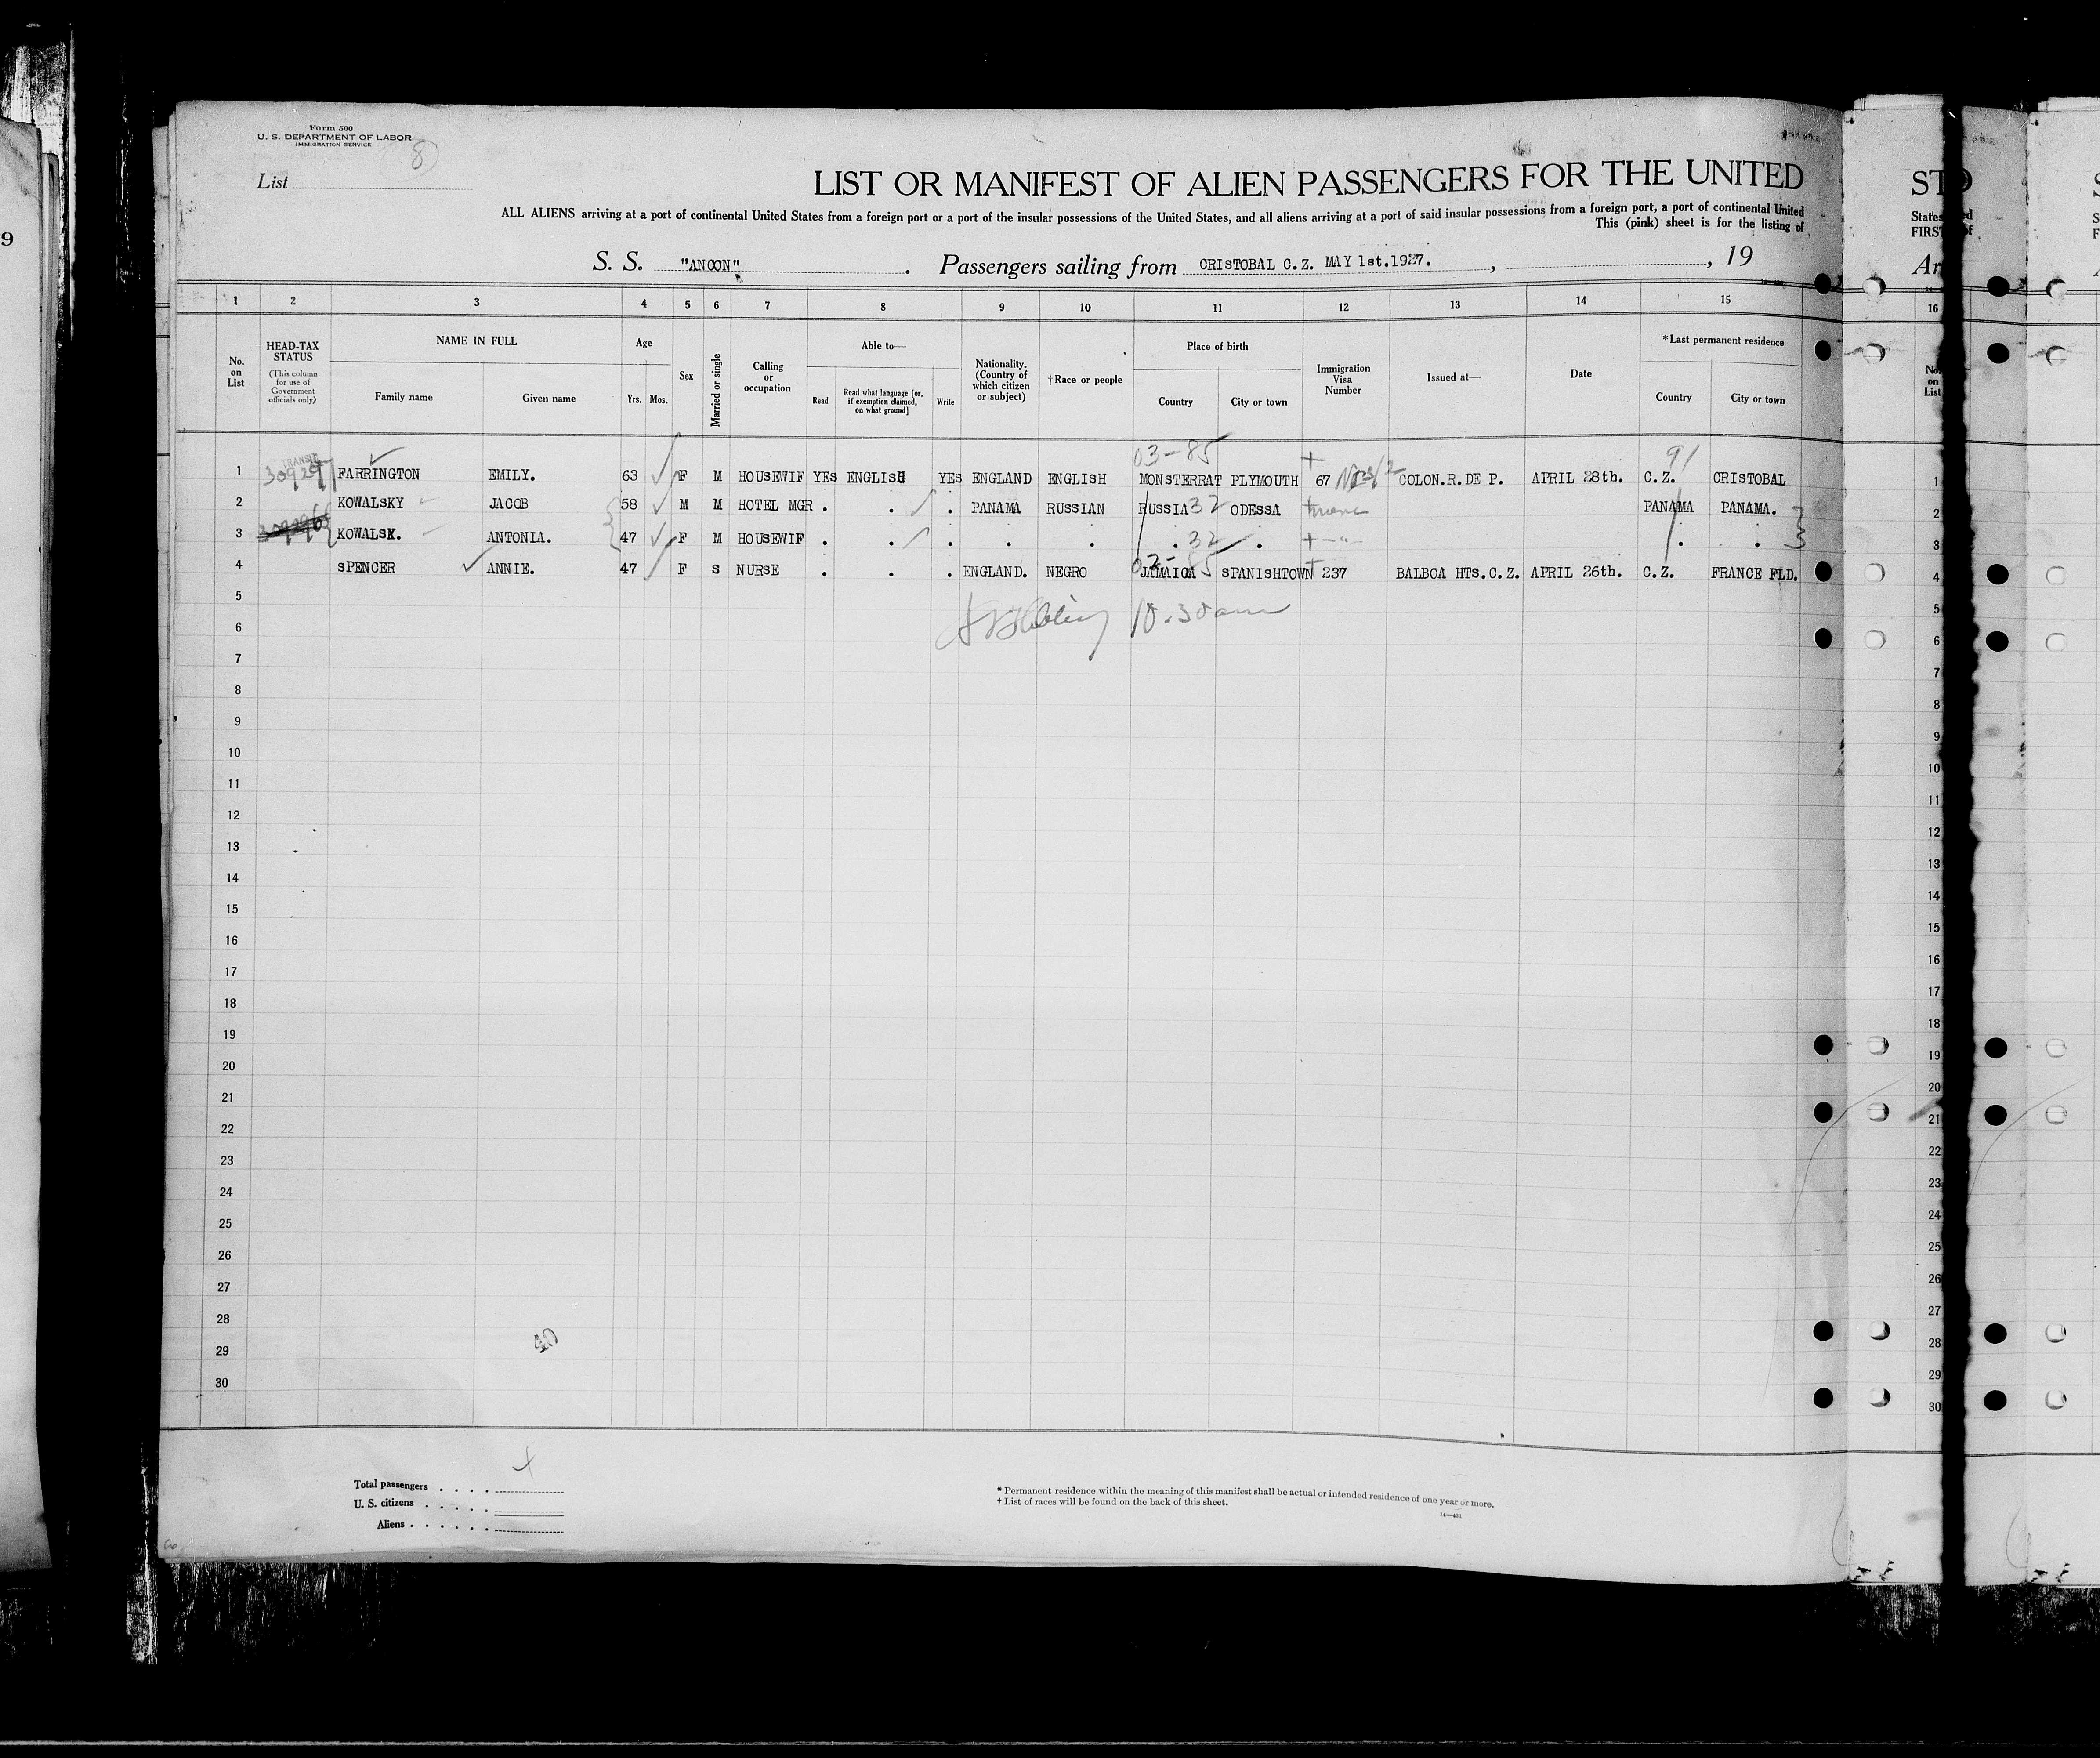 Form 500
U. S. DEPARTMENT OF LABOR
IMMIGRATION SERVICE
8
List
LIST OR MANIFEST OF ALIEN PASSENGERS FOR THE UNITED
ALL ALIENS arriving at a port of continental United States from a foreign port or a port of the insular possessions of the United States, and all aliens arriving at a port of said insular possessions from a foreign port, a port of continental United
This (pink) sheet is for the listing of
S. S. "ANCON". Passengers sailing from CRISTOBAL C.Z. MAY 1st.1927. , , 19
1 2 3 4 5 6 7 8 9 10 11 12 13 14 15
No. on List
HEAD-TAX STATUS
(This column for use of Government officials only)
NAME IN FULL
Family name Given name
Age
Yrs. Mos.
Sex
Married or single
Calling or occupation
Able to—
Read Read what language [or, if exemption claimed, on what ground] Write
Nationality. (Country of which citizen or subject)
†Race or people
Place of birth
Country City or town
Immigration Visa Number
Issued at—
Date
*Last permanent residence
Country City or town
03-85 91
1 TRANSIT FARRINGTON EMILY. 63 F M HOUSEWIF YES ENGLISH YES ENGLAND ENGLISH MONSTERRAT PLYMOUTH 67 COLON.R.DE P. APRIL 28th. C.Z. CRISTOBAL
2 KOWALSKY JACOB 58 M M HOTEL MGR . . . PANAMA RUSSIAN RUSSIA 32 ODESSA PANAMA PANAMA.
3 KOWALSK. ANTONIA. 47 F M HOUSEWIF . . . . . . 32 . . .
4 SPENCER ANNIE. 47 F S NURSE . . . ENGLAND. NEGRO JAMAICA SPANISHTOWN 237 BALBOA HTS.C.Z. APRIL 26th. C.Z. FRANCE FLD.
5
10.30am
6
7
8
9
10
11
12
13
14
15
16
17
18
19
20
21
22
23
24
25
26
27
28
29
30
Total passengers . . . .
U. S. citizens . . . . .
Aliens . . . . . .
* Permanent residence within the meaning of this manifest shall be actual or intended residence of one year or more.
† List of races will be found on the back of this sheet.
9
ST
States
FIRST
Ar
16
No. on List
1
2
3
4
5
6
7
8
9
10
11
12
13
14
15
16
17
18
19
20
21
22
23
24
25
26
27
28
29
30